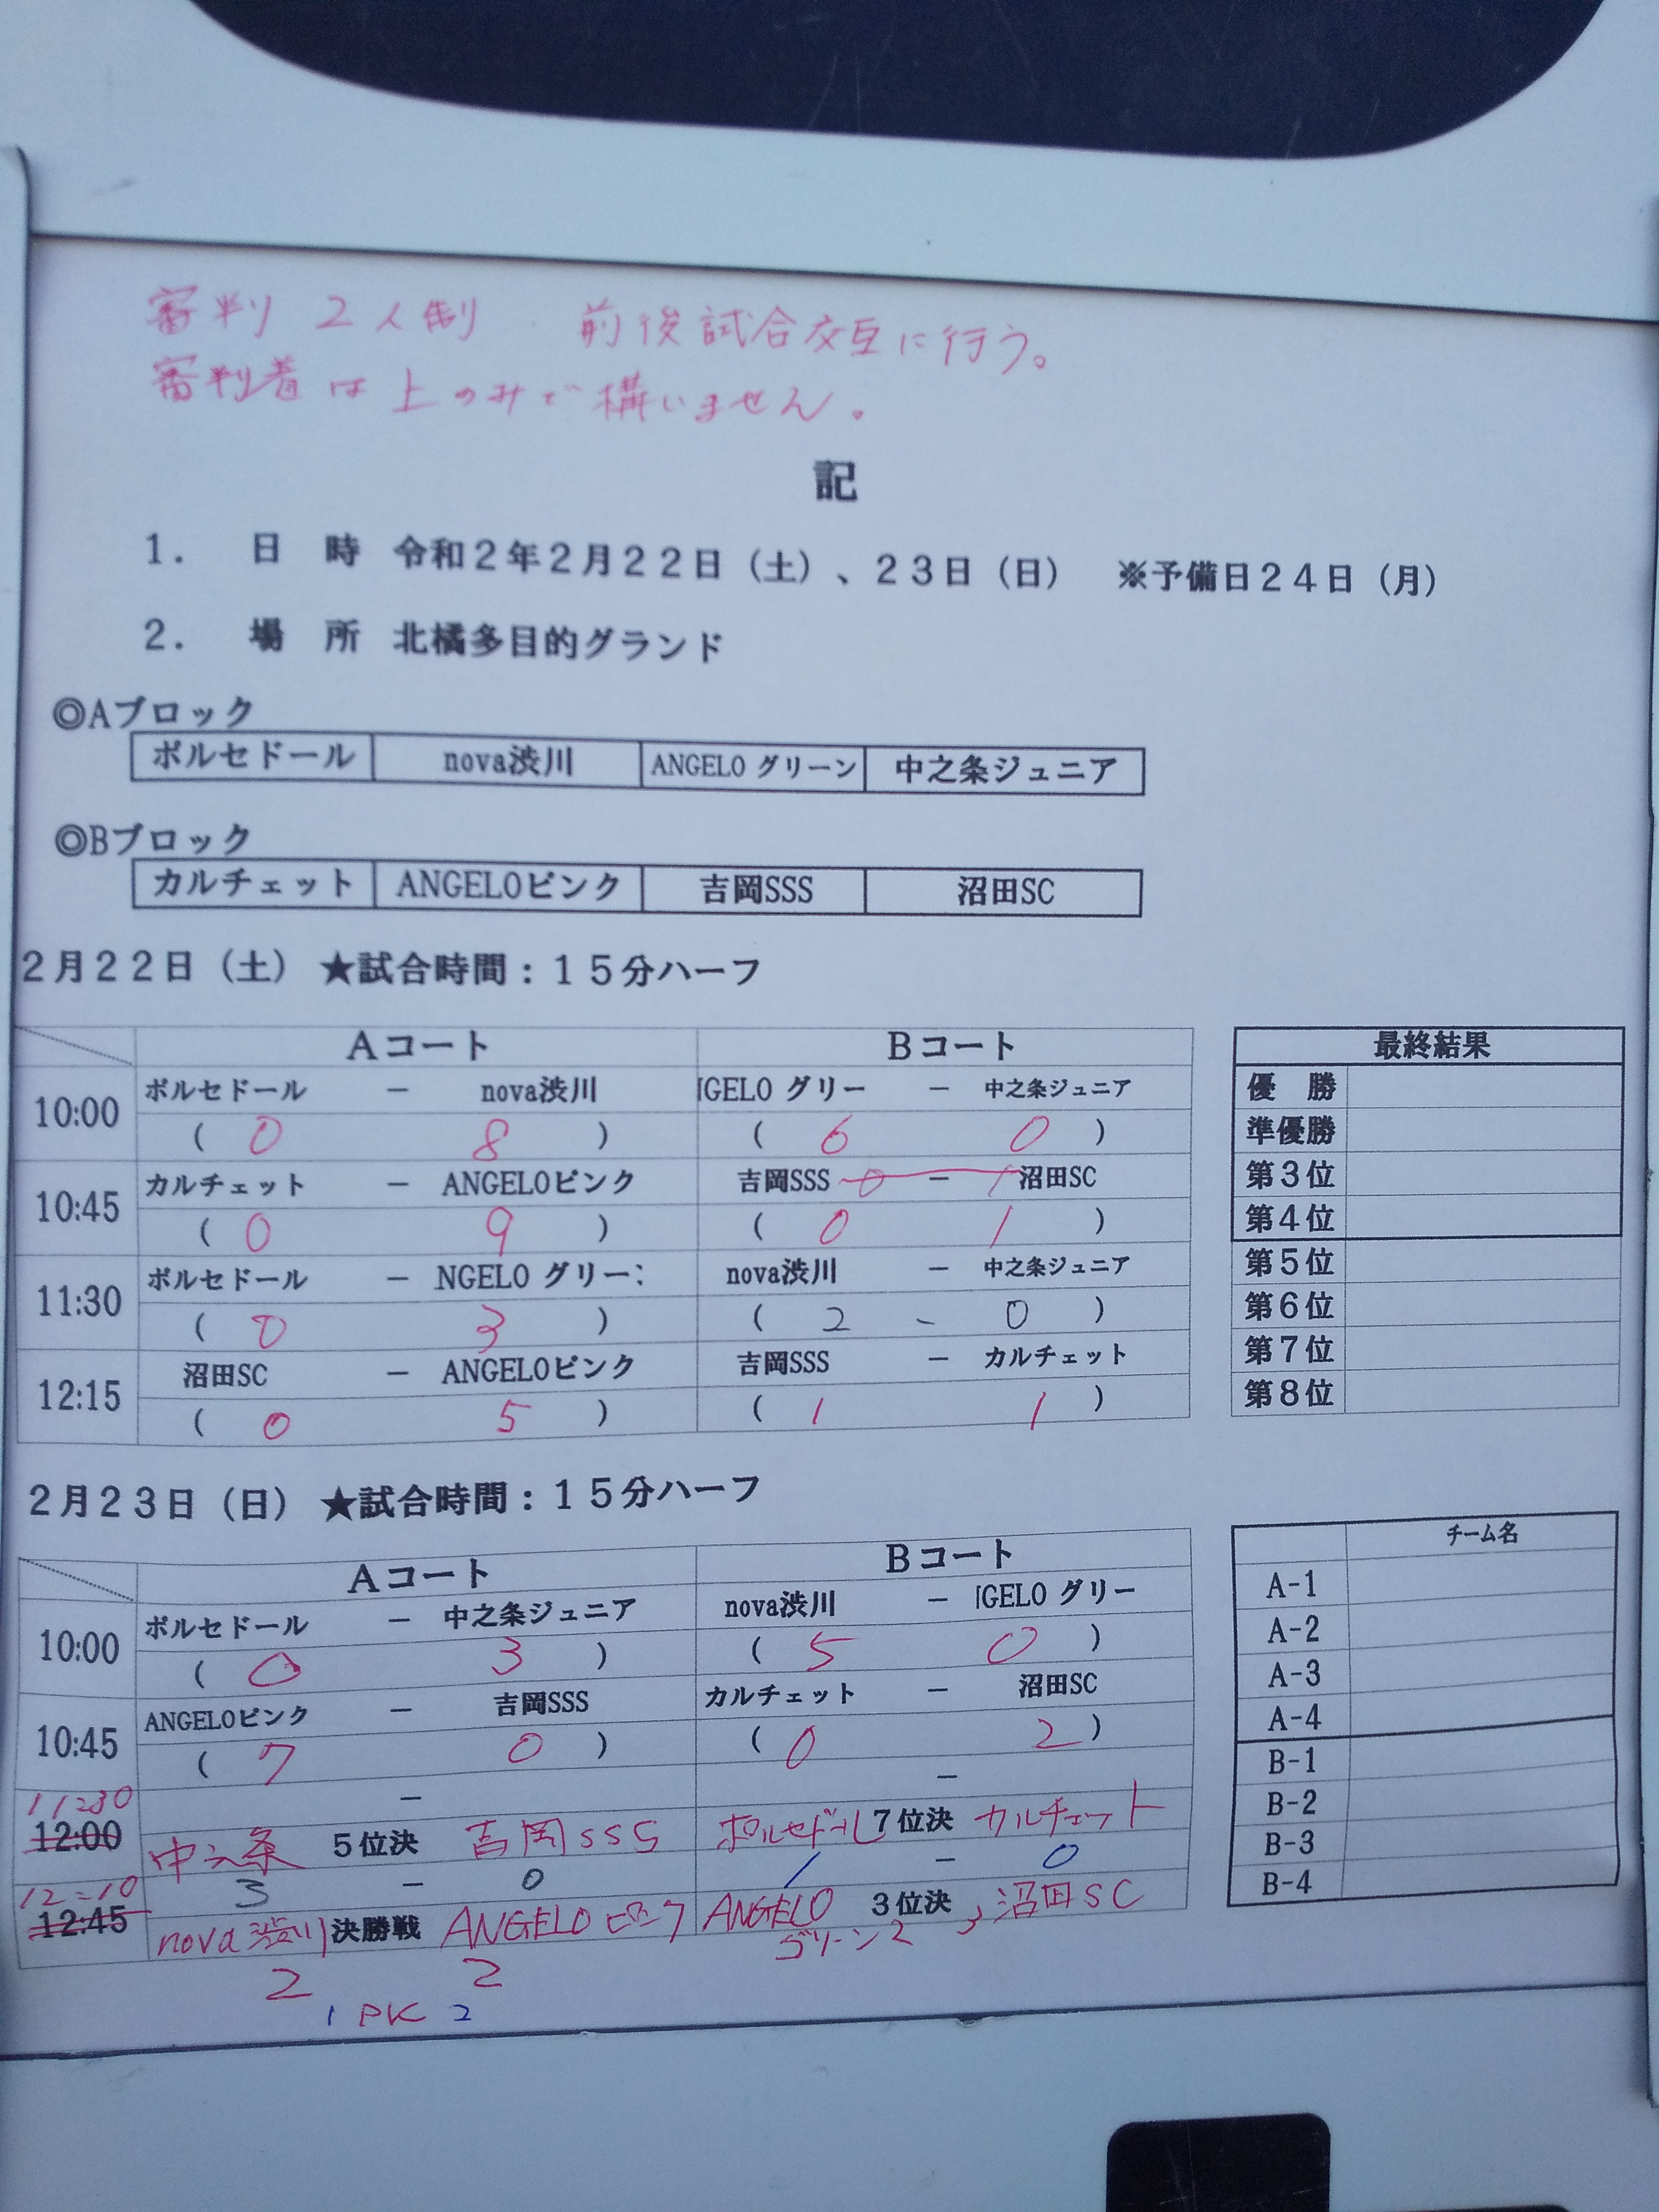 審判 2人制 前後試合交互に行う。
審判着は上のみで構いません。
記
1. 日 時 令和2年2月22日(土)、23日(日) ※予備日24日(月)
2. 場 所 北橘多目的グランド
◎Aブロック
ポルセドール nova渋川 ANGELO グリーン 中之条ジュニア
◎Bブロック
カルチェット ANGELOピンク 吉岡SSS 沼田SC
2月22日(土) ★試合時間:15分ハーフ
Aコート Bコート
10:00 ポルセドール - nova渋川 IGELO グリー - 中之条ジュニア
( 0 8 ) ( 6 0 )
10:45 カルチェット - ANGELOピンク 吉岡SSS 0 - 1 沼田SC
( 0 9 ) ( 0 1 )
11:30 ポルセドール - NGELO グリー: nova渋川 - 中之条ジュニア
( 0 3 ) ( 2 - 0 )
12:15 沼田SC - ANGELOピンク 吉岡SSS - カルチェット
( 0 5 ) ( 1 1 )
最終結果
優 勝
準優勝
第3位
第4位
第5位
第6位
第7位
第8位
2月23日(日) ★試合時間:15分ハーフ
Aコート Bコート
10:00 ポルセドール - 中之条ジュニア nova渋川 - IGELO グリー
( 0 3 ) ( 5 0 )
10:45 ANGELOピンク - 吉岡SSS カルチェット - 沼田SC
( 7 0 ) ( 0 2 )
11:30 - -
12:00 中之条 5位決 吉岡SSS ポルセドール 7位決 カルチェット
12:10 3 - 0 1 - 0
12:45 nova渋川 決勝戦 ANGELOピンク ANGELO 3位決 沼田SC
グリーン 2 3
2 2
1 PK 2
チーム名
A-1
A-2
A-3
A-4
B-1
B-2
B-3
B-4